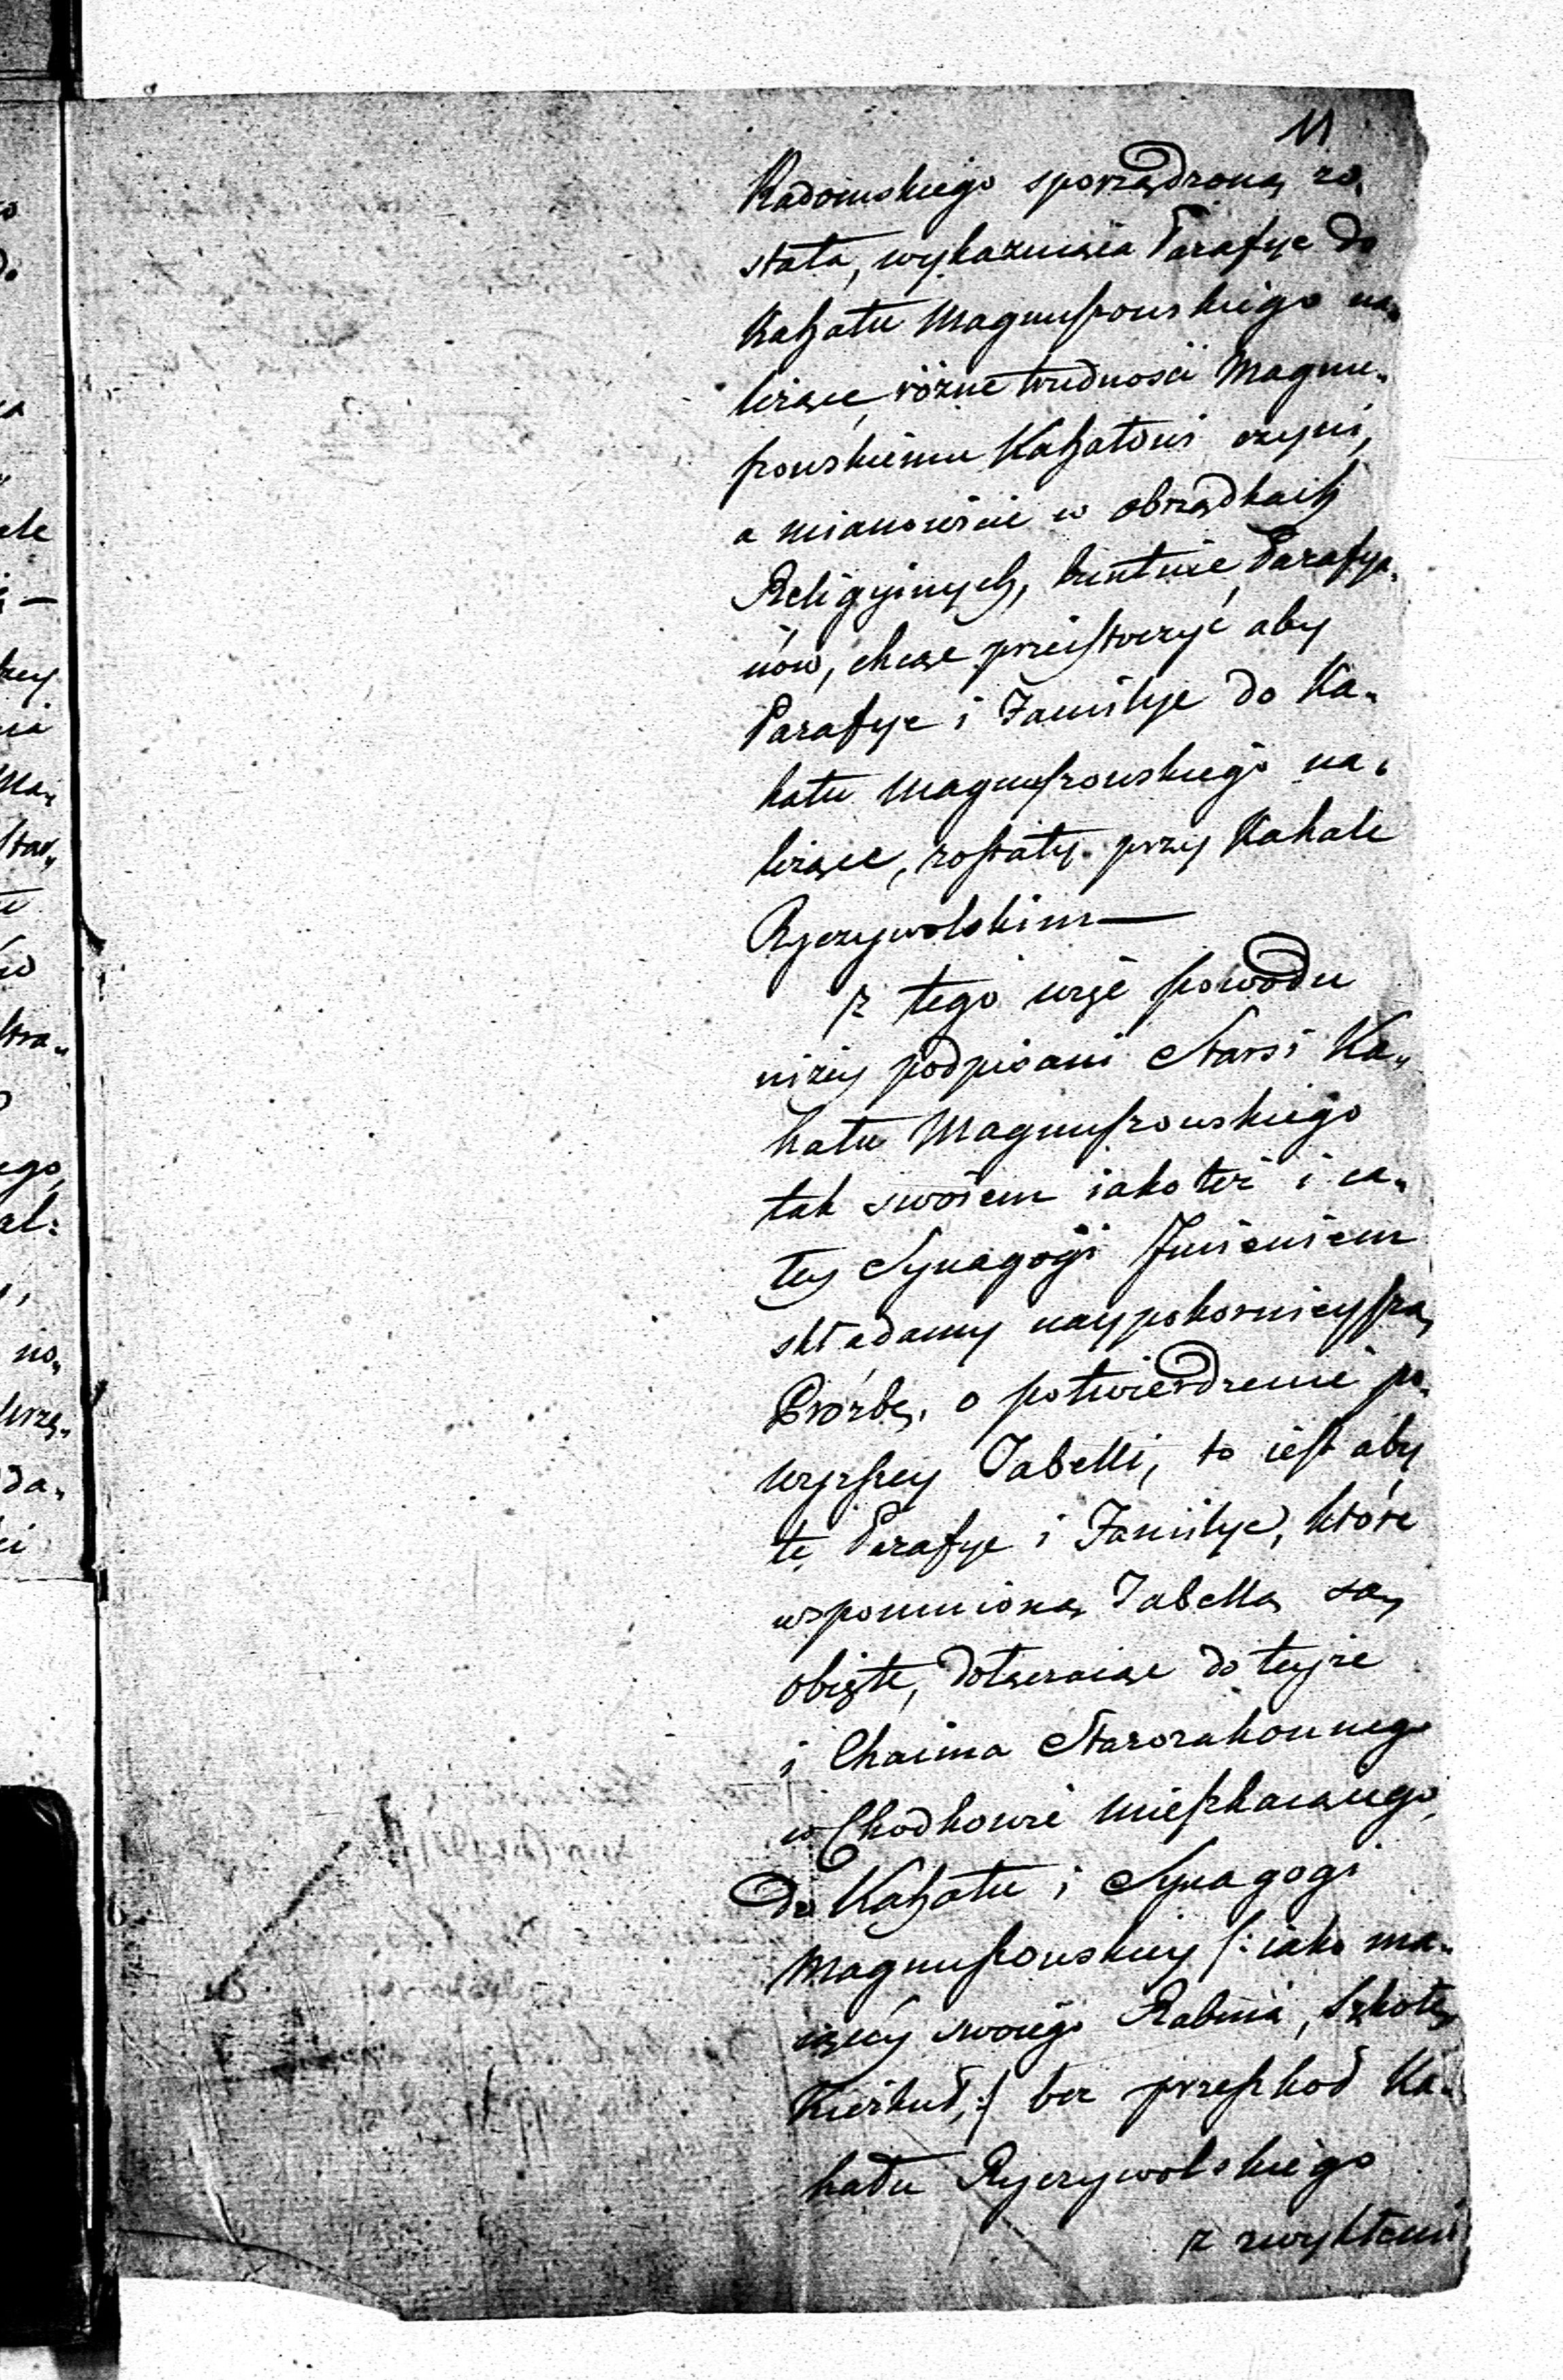 11
Radomskiego sporządzoną zo„
stała, wykazuiąca Parafye do
Kahału Magnuszewskiego na„
leżące, różne trudności Magnu„
szewskiemu Kahałowi czyni,
a mianowicie w obrządkach
Religyinych, buntuie Parafya„
nów, chcąc przeistoczyć aby
Parafye i Familije do Ka„
hału Magnuszewskiego na„
leżące, zostały przy Kahale
Ryczywolskim —
Z tego więc powodu
niżey podpisani Starsi Ka„
hału Magnuszewskiego
tak swoiem iako też i ca„
łey Synagogi Imieniem
składamy naypokornieyszą
Prózbę, o potwierdzenie po„
wyższey Tabelli, to iest aby
te Parafye i Familye, które
wspomnioną Tabellą są
obięte, dołączaiąc do teyże
i Chaima Starozakonnego
w Chodkowie mieszkaiącego,
do Kahału i Synagogi
Magnuszewskiey /: iako ma„
iącey swoiego Rabina, Szkołę,
Kierkut, :/ bez przeszkod Ka„
hału Ryczywolskiego
z zwykłemi
ele
rzey
Ma„
Star„
tra„
ego,
al:
no„
da„